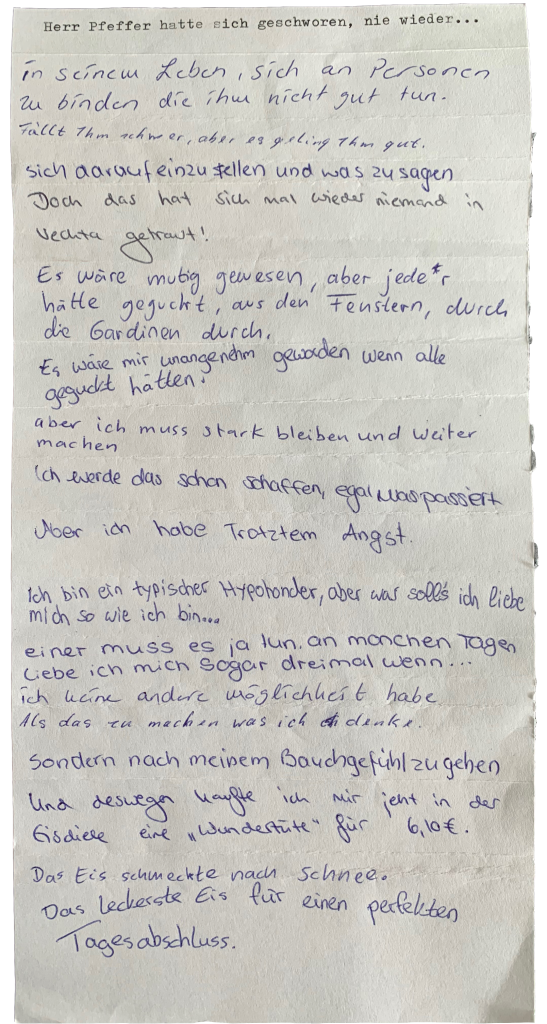 Herr Pfeffer hatte sich geschworen, nie wieder...
in seinem Leben, sich an Personen
zu binden die ihm nicht gut tun.
Fällt Ihm schwer, aber es geling Ihm gut.
sich darauf einzustellen und was zu sagen
Doch das hat sich mal wieder niemand in
Vechta getraut!
Es wäre mutig gewesen, aber jede*r
hätte geguckt, aus den Fenstern, durch
die Gardinen durch.
Es wäre mir unangenehm geworden wenn alle
geguckt hätten.
aber ich muss stark bleiben und weiter
machen
Ich werde das schon schaffen, egal was passiert
Aber ich habe Trotztem Angst.
Ich bin ein typischer Hypohonder, aber was soll's ich liebe
mich so wie ich bin...
einer muss es ja tun. an manchen Tagen
Liebe ich mich sogar dreimal wenn...
ich keine andere möglichkeit habe
Als das zu machen was ich denke.
sondern nach meinem Bauchgefühl zu gehen
Und deswegen kaufte ich mir jetzt in der
Eisdiele eine „Wundertüte" für 6,10€.
Das Eis schmeckte nach Schnee.
Das leckerste Eis für einen perfekten
Tagesabschluss.